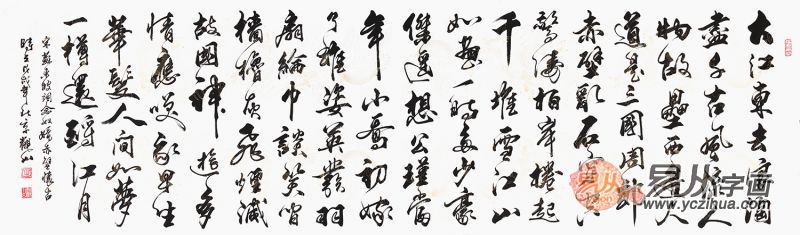 大江東去浪淘
盡千古風流人
物故壘西邊人
道是三國周郎
赤壁亂石穿空
驚濤拍岸捲起
千堆雪江山
如畫一時多少豪
傑遙想公瑾當
年小喬初嫁
了雄姿英發羽
扇綸巾談笑間
檣櫓灰飛煙滅
故國神遊多
情應笑我早生
華髮人間如夢
一樽還酹江月
宋蘇東坡詞念奴嬌赤壁懷古
時在戊戌年秋京觀山
易从字画
www.yczihua.com